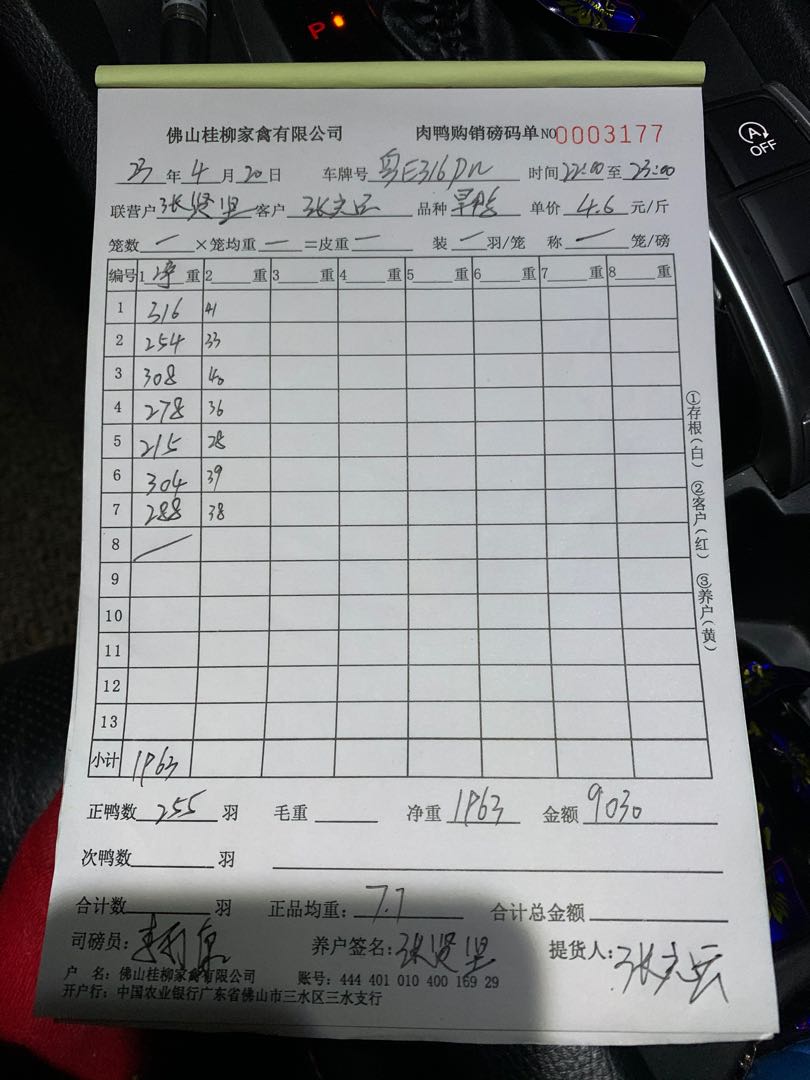 P
A OFF
佛山桂柳家禽有限公司 肉鸭购销磅码单 NO 0003177
23 年 4 月 20 日 车牌号 粤E316DN 时间 22:00 至 23:00
联营户 张贤坚 客户 张文云 品种 单价 4.6 元/斤
笼数 一 ×笼均重 一 =皮重 一 装 一 羽/笼 称 一 笼/磅
编号 1 净 重 2 重 3 重 4 重 5 重 6 重 7 重 8 重
1 316 41
2 254 33
3 308 40
4 278 36
5 215 28
6 304 39
7 288 38
8
9
10
11
12
13
小计 1963
①存根(白) ②客户(红) ③养户(黄)
正鸭数 255 羽 毛重 净重 1963 金额 9030
次鸭数 羽
合计数 羽 正品均重: 7.7 合计总金额
司磅员: 养户签名: 张贤坚 提货人: 张文云
户 名: 佛山桂柳家禽有限公司 账号: 444 401 010 400 169 29
开户行: 中国农业银行广东省佛山市三水区三水支行